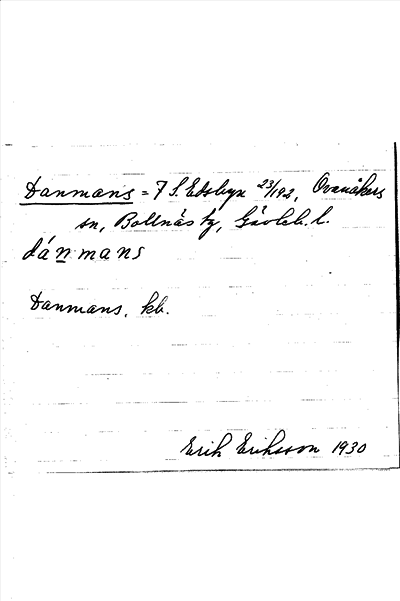 Danmans = 7 S. Edsbyn 23/192, Ovanåkers
sn, Bollnäs tg, Gävleb. l.
dánmans
Danmans. kb.
Erik Eriksson 1930